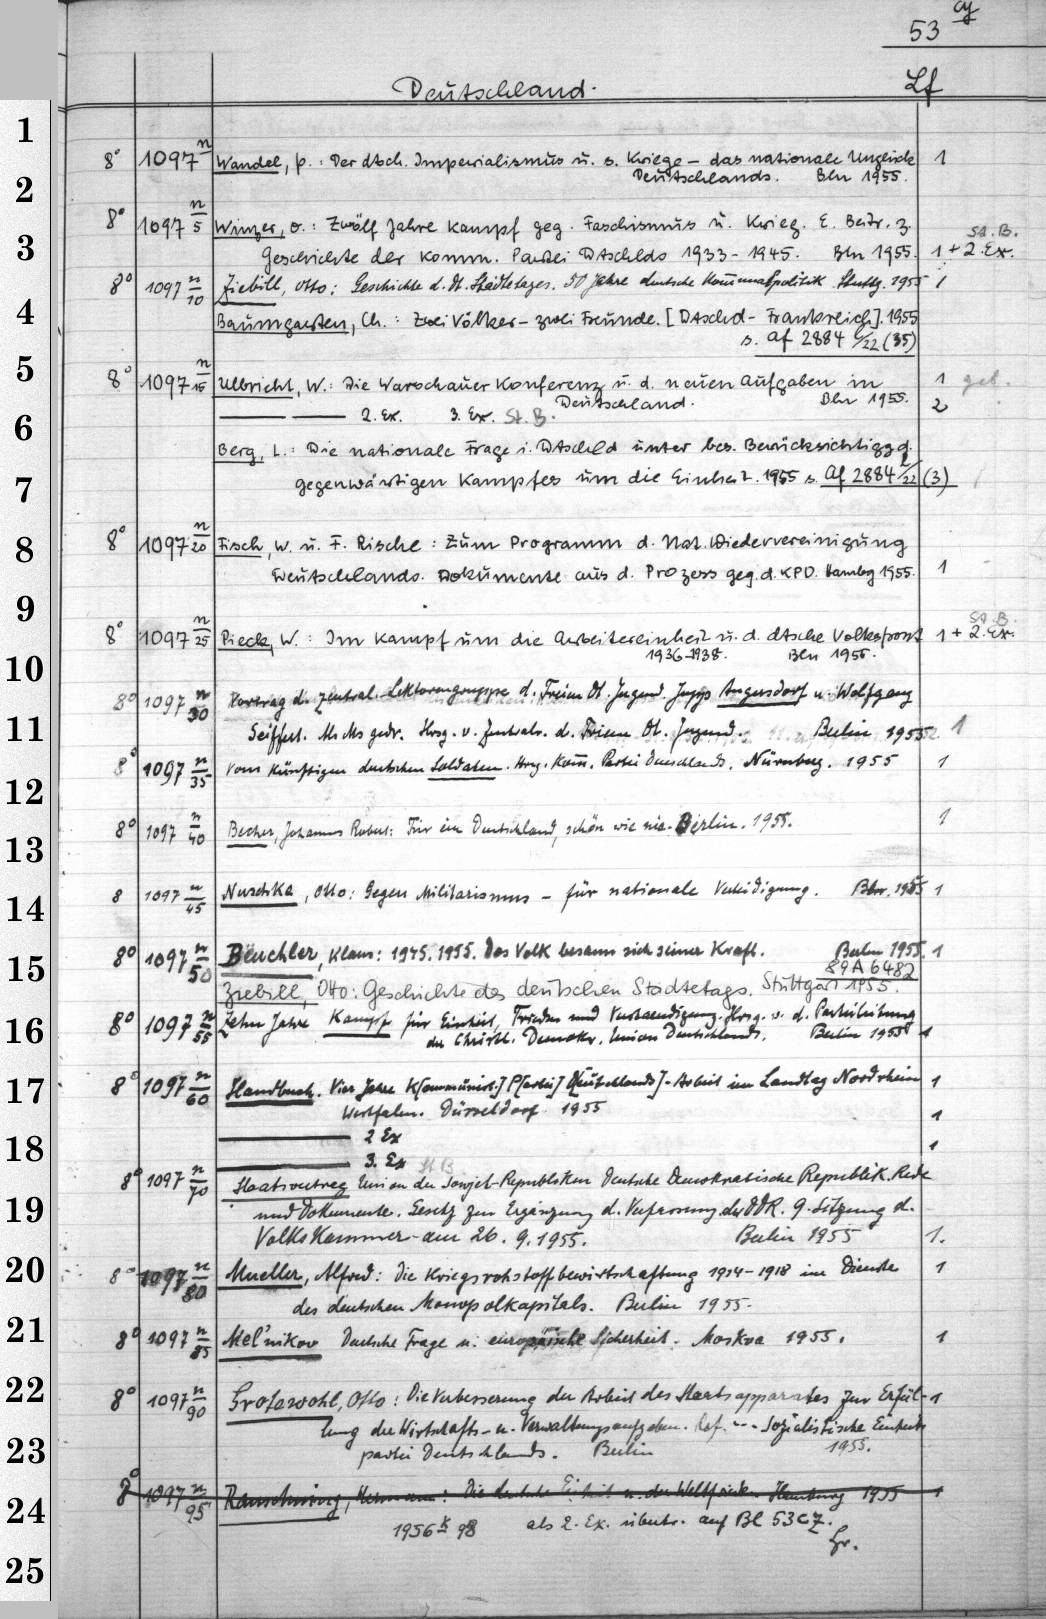 53 cy
Deutschland. Lf
1
8° 1097 n Wandel, P.: Der dtsch. Imperialismus u. s. Kriege – das nationale Unglück 1
2 Deutschlands. Bln 1955.
8° 1097 n/5 Winzer, O.: Zwölf Jahre Kampf geg. Faschismus u. Krieg. E. Beitr. z.
3 Geschichte der Komm. Partei Dtschlds 1933–1945. Bln 1955. 1 + 2. Ex. St. B.
8° 1097 n/10 Ziebill, Otto: Geschichte d. Dt. Städtetages. 50 Jahre deutsche Kommunalpolitik. Stuttg. 1955 1
4 Baumgarten, Ch.: Zwei Völker – zwei Freunde. [Dtschld – Frankreich]. 1955
s. Af 2884 /22 (35)
5 8° 1097 n/15 Ulbricht, W.: Die Warschauer Konferenz u. d. neuen Aufgaben in 1 geb.
Deutschland. Bln 1955.
—— —— 2. Ex. 3. Ex. St. B. 2
6
Berg, L.: Die nationale Frage i. Dtschld unter bes. Berücksichtigg d.
7 gegenwärtigen Kampfes um die Einheit. 1955 s. Af 2884 /22 (3)
8 8° 1097 n/20 Fisch, W. u. F. Rische: Zum Programm d. Nat. Wiedervereinigung
Deutschlands. Dokumente aus d. Prozess geg. d. KPD. Hambg 1955. 1
9
8° 1097 n/25 Pieck, W.: Im Kampf um die Arbeitereinheit u. d. dtsche Volksfront 1 + 2. Ex. St. B.
10 1936–1938. Bln 1955.
8° 1097 n/30 Vortrag d. Zentral. Lektorengruppe d. Freien Dt. Jugend. Angersdorf u. Wolfgang
11 Seiffert. Als Ms gedr. Hrsg. v. Zentralr. d. Freien Dt. Jugend. Berlin 1955 1
8° 1097 n/35 Vom künftigen deutschen Soldaten. Hrsg. Kom. Partei Deutschlands. Nürnberg. 1955 1
12
8° 1097 n/40 Becher, Johannes Robert: Für ein Deutschland, schön wie nie. Berlin. 1955. 1
13
14 8 1097 n/45 Nuschke, Otto: Gegen Militarismus – für nationale Verteidigung. Bln. 1955 1
8° 1097 n/50 Beuchler, Klaus: 1945. 1955. Das Volk besann sich seiner Kraft. Berlin 1955. 1
15 89 A 6482
Ziebill, Otto: Geschichte des deutschen Städtetags. Stuttgart 1955.
16 8° 1097 n/55 Zehn Jahre Kampf für Einheit, Frieden und Verständigung. Hrsg. v. d. Parteileitung
der Christl. Demokr. Union Deutschlands. Berlin 1955 1
17 8° 1097 n/60 Handbuch. Vier Jahre K[ommunist.] P[artei] D[eutschlands]-Arbeit im Landtag Nordrhein 1
Westfalen. Düsseldorf 1955
—— 2 Ex 1
18 —— 3. Ex St B 1
8° 1097 n/70 Staatsvertrag Union der Sowjet-Republiken Deutsche Demokratische Republik. Rede
19 und Dokumente. Gesetz zur Ergänzung d. Verfassung der DDR. 9. Sitzung d.
Volkskammer am 26. 9. 1955. Berlin 1955 1.
20 8° 1097 n/80 Mueller, Alfred: Die Kriegsrohstoffbewirtschaftung 1914–1918 im Dienste 1
des deutschen Monopolkapitals. Berlin 1955.
21 8° 1097 n/85 Mel'nikov Deutsche Frage u. europäische Sicherheit. Moskva 1955. 1
22 8° 1097 n/90 Grotewohl, Otto: Die Verbesserung der Arbeit des Staatsapparates zur Erfül- 1
lung der Wirtschafts- u. Verwaltungsaufgaben. Ref. --- Sozialistische Einheits
23 partei Deutschlands. Berlin 1955.
8° 1097 n/95 Rauschning, Hermann: Die deutsche Einheit u. der Weltfriede. Hamburg 1955 1
24 1956 K 98 als 2. Ex. übertr. auf Bl 53 c z.
Gr.
25